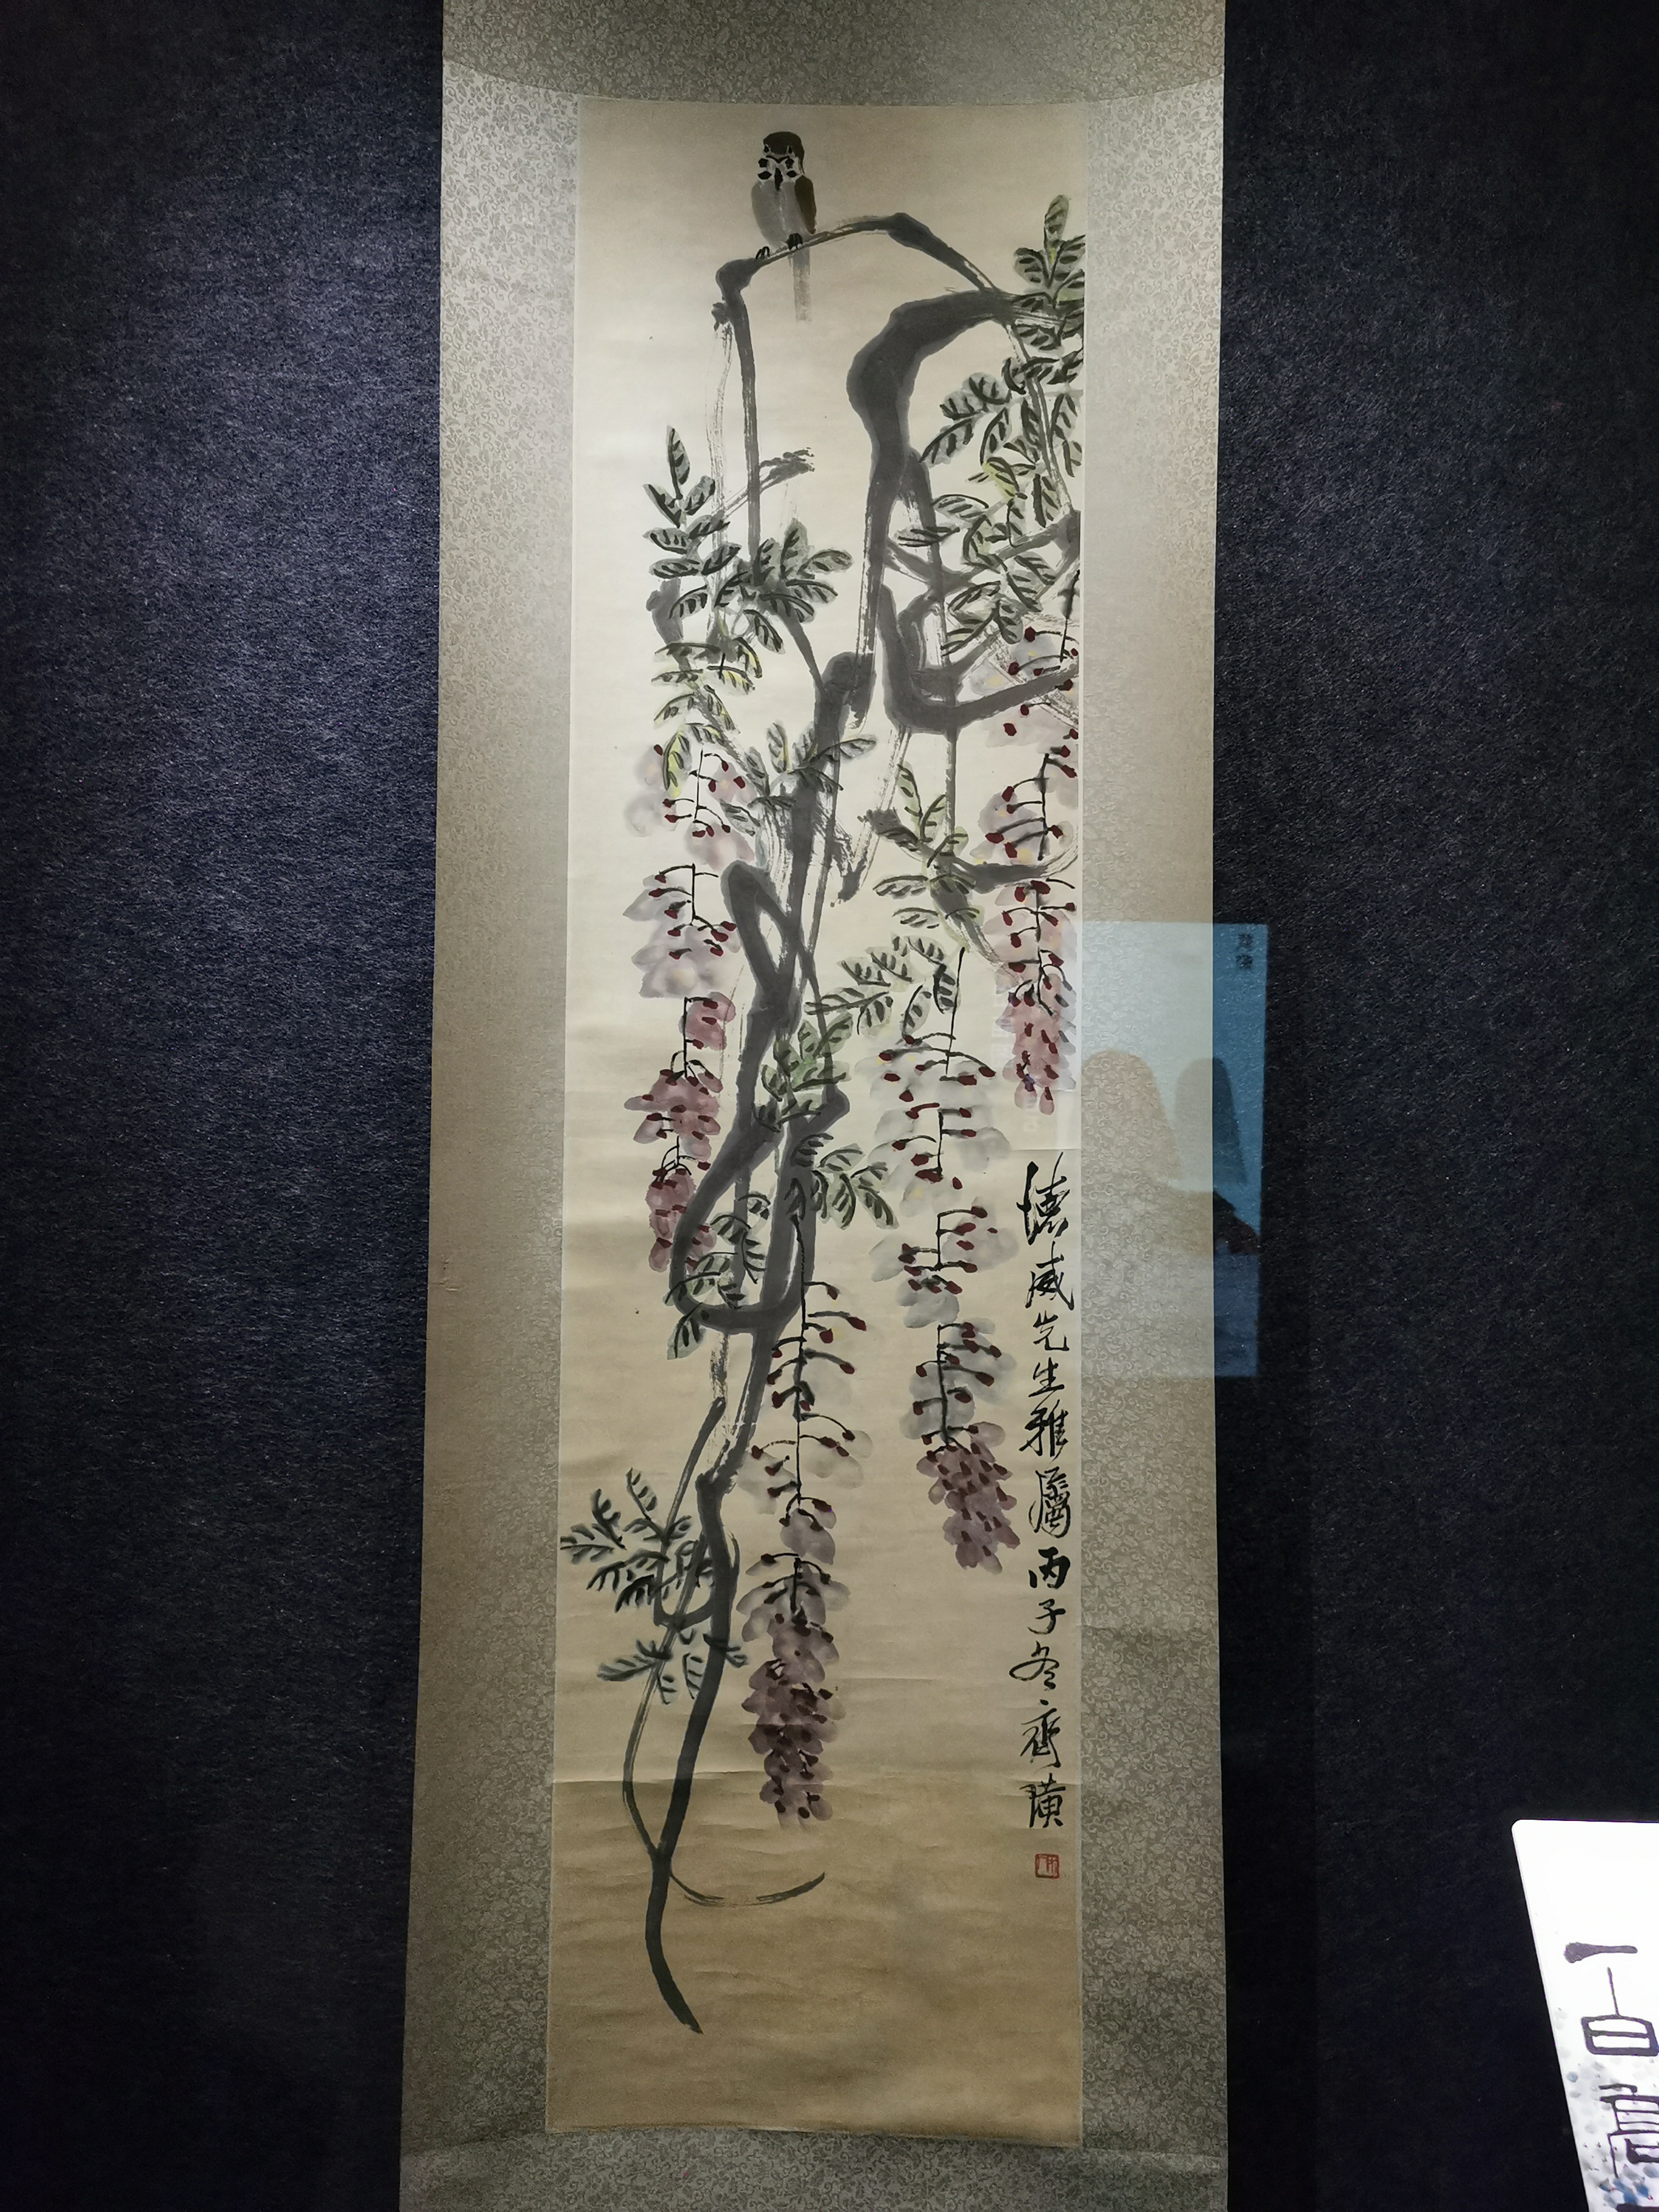 德威先生雅屬丙子冬齊璜